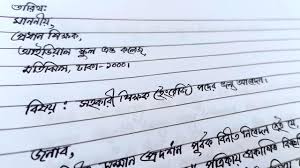 তারিখ:
মাননীয়,
প্রধান শিক্ষক,
আইডিয়াল স্কুল এন্ড কলেজ,
মতিঝিল, ঢাকা-১০০০।
বিষয় : সহকারী শিক্ষক (ইংরেজি) পদের জন্য আবেদন।
জনাব,
প্রদর্শন পূর্বক বিনীত নিবেদন এই যে,